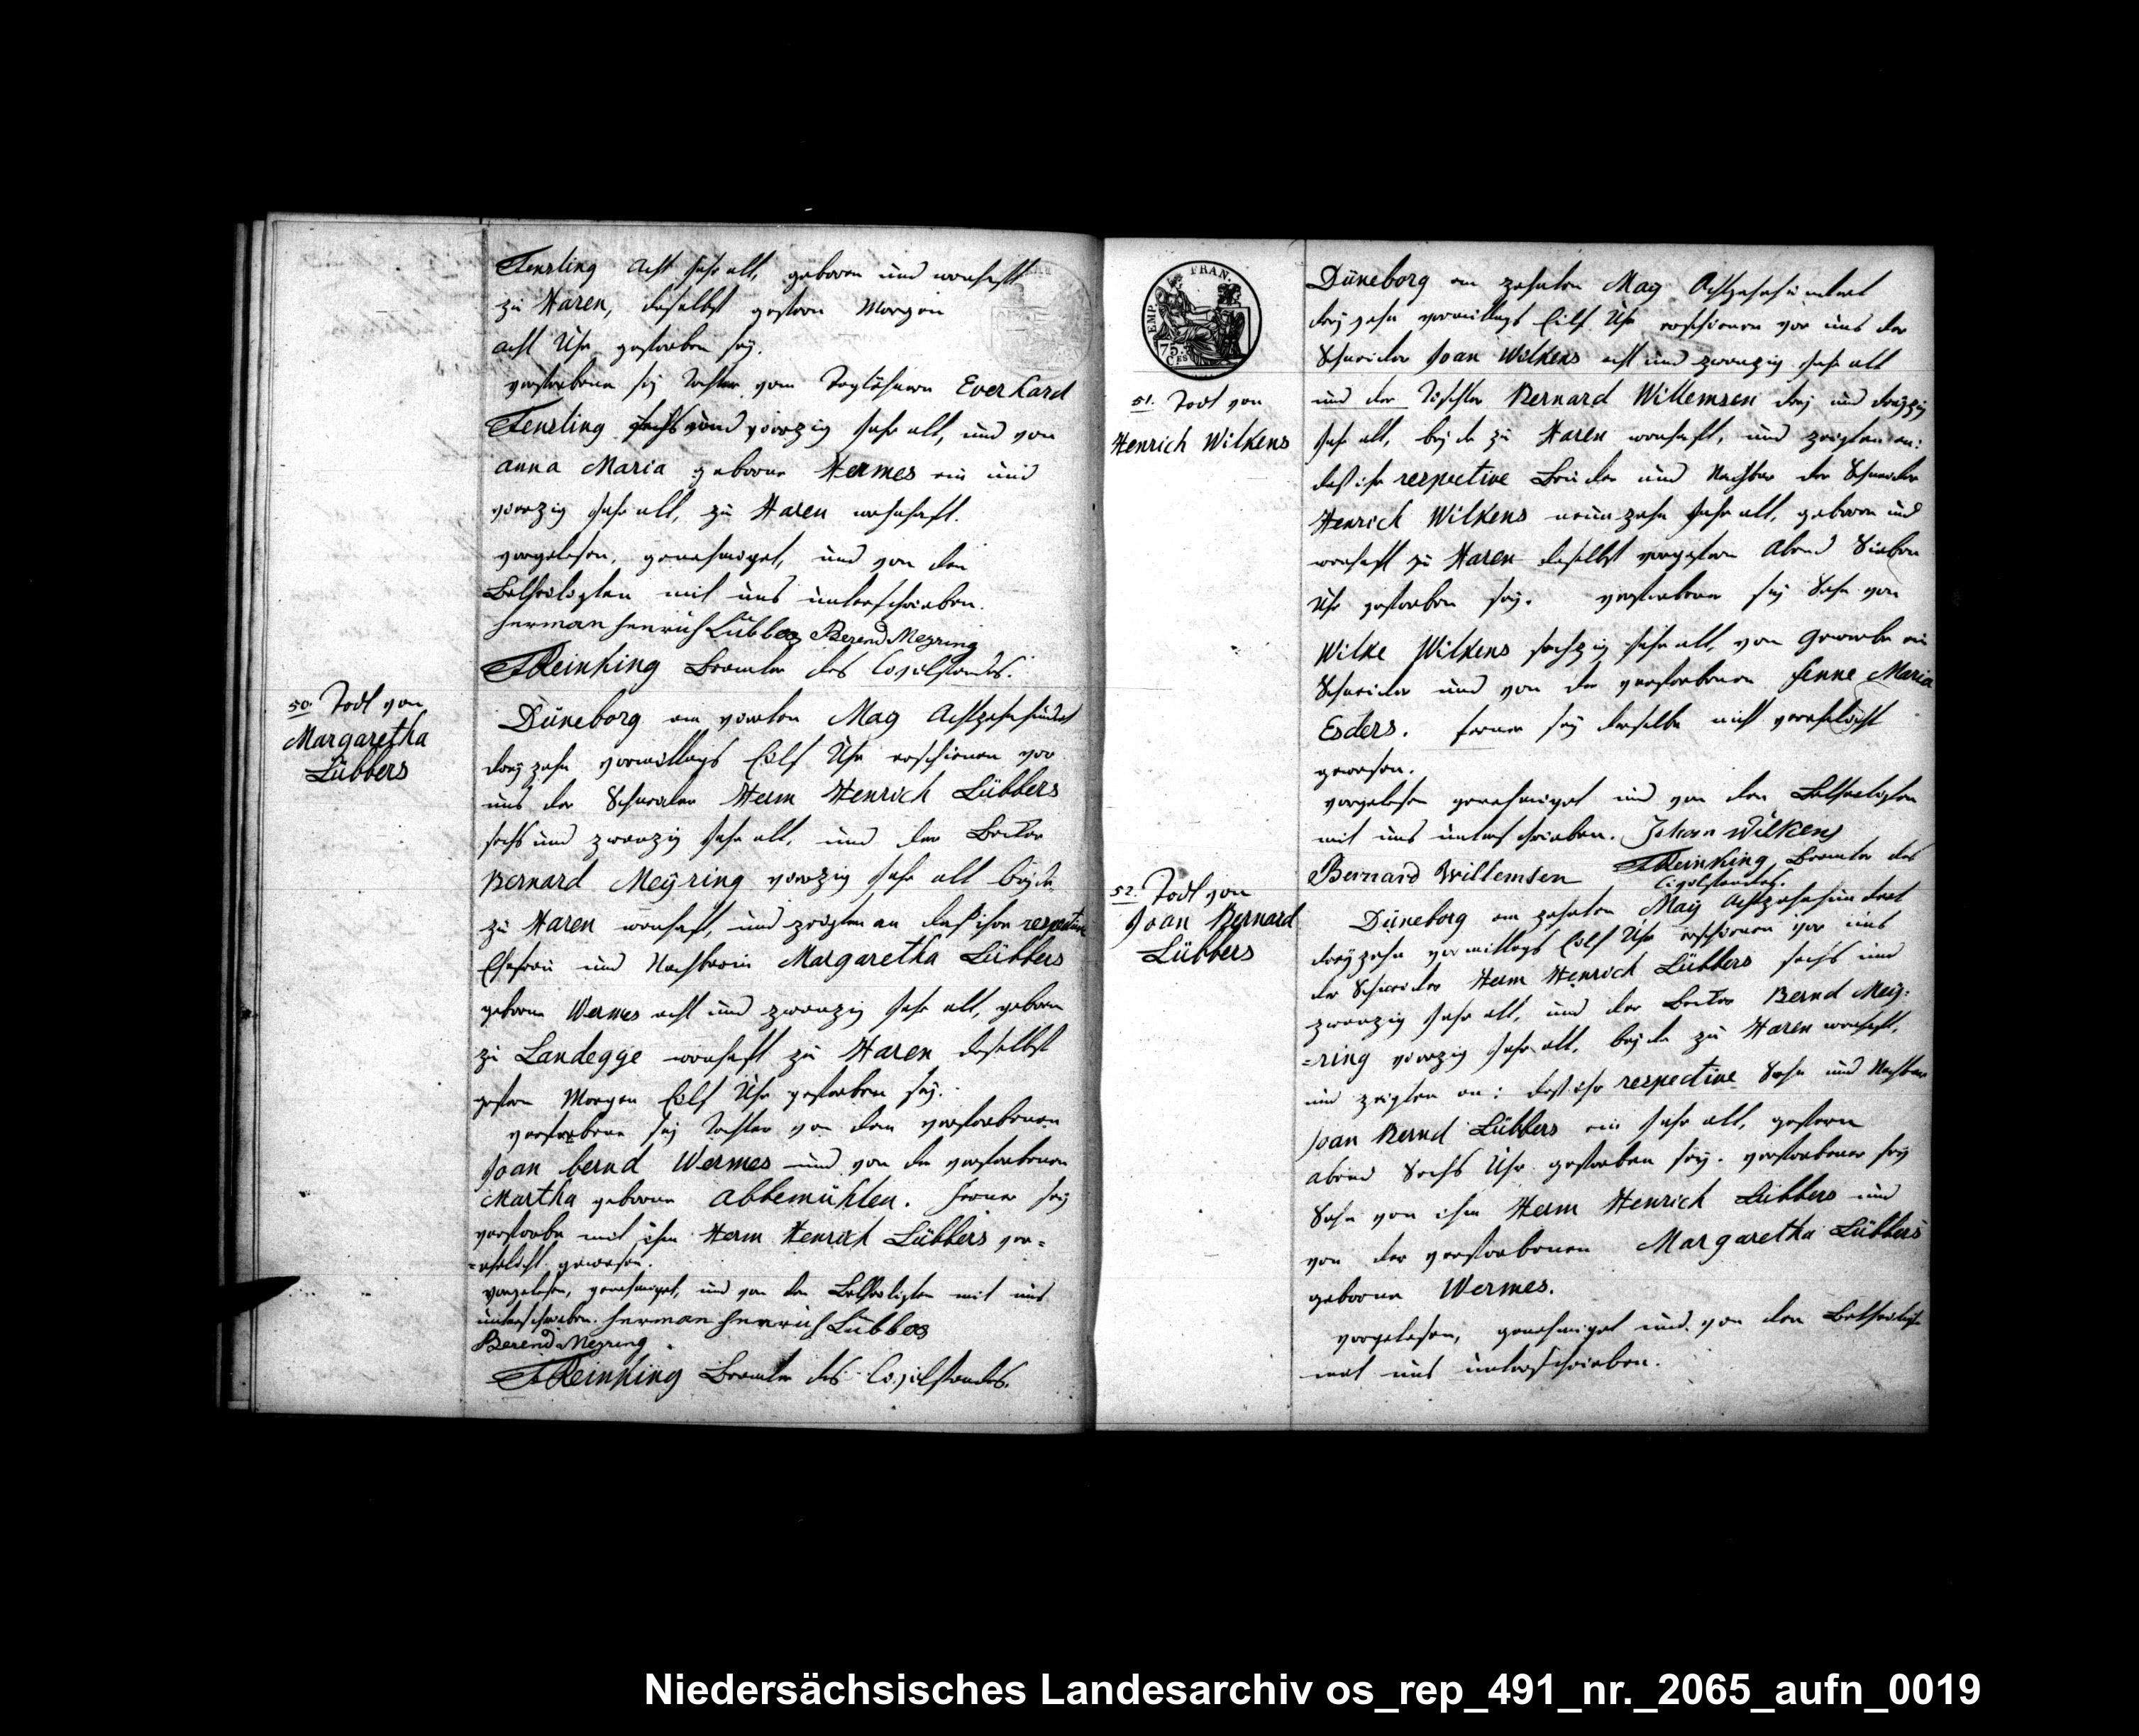 Tensling acht Jahr alt, geboren und wonhaft
zu Haren, daselbst gestern Morgen
acht Uhr gestorben sey.
verstorbene sey Tochter vom Taglöhnern Everhard
Tensling sechs und vierzig Jahr alt, und von
anna Maria geborne Hermes ein und
vierzig Jahr alt, zu Haren wohnhaft.
vorgelesen, genehmiget, und von den
Betheiligten mit uns unterschrieben.
herman henrich Lübbers Berend Meyring
Reinking Beamter des Civilstandes.
50. Todt von
Margaretha
Lübbers
Düneborg am vierten May Achtzehnhundert
dreyzehn vormittags Eilf Uhr erschienen vor
uns der Schneider Herm Henrich Lübbers
sechs und zwanzig Jahr alt, und der
Bernard Meÿring vierzig Jahr alt beyde
zu Haren wonhaft, und zeigten an daß ihre respective
Ehefrau und Nachbarin Margaretha Lübbers
geborne Wermes acht und zwanzig Jahr alt, geboren
zu Landegge wonhaft zu Haren daselbst
gestern Morgen Eilf Uhr gestorben sey.
verstorbene sey Tochter von dem verstorbenen
Joan bernd Wermes und von der verstorbenen
Martha geborne Abbemühlen. ferner sey
verstorbe mit ihm Herm Henrich Lübbers ver=
=ehelicht gewesen.
vorgelesen, genehmiget, und von den Betheiligten mit uns
unterschrieben. herman henrich Lübbers
Berend Meyring
Reinking Beamter des Civilstandes.
EMP. FRAN.
75.
Ces
51. Todt von
Henrich Wilkens
Düneborg am zehnten May Achtzehnhundert
dreyzehn vormittags Eilf Uhr erschienen vor uns der
Schneider Joan Wilkens acht und zwanzig Jahr alt
und der Tischler Bernard Willemsen drey und dreyzig
Jahr alt, beyde zu Haren wonhaft, und zeigten an:
daß ihr respective Bruder und Nachbar der Schneider
Henrich Wilkens neunzehn Jahr alt, geboren und
wonhaft zu Haren daselbst vorgestern Abend Sieben
Uhr gestorben sey. verstorbener sey Sohn von
Wilke Wilkens sechzig Jahr alt, von Gewerbe ein
Schneider und von der verstorbenen Anne Maria
Esders. ferner sey derselbe nicht verehelicht
gewesen.
vorgelesen genehmiget und von den Betheiligten
mit uns unterschrieben. Johan Wilkens
Bernard Willemsen Reinking, Beamter des
Civilstandes.
52. Todt von
Joan Bernard
Lübbers
Düneborg am zehnten May Achtzehnhundert
dreyzehn vormittags Eilf Uhr erschienen vor uns
der Schneider Herm Henrich Lübbers sechs und
zwanzig Jahr alt, und der Bernd Meÿ=
=ring vierzig Jahr alt, beyde zu Haren wonhaft,
und zeigten an: daß ihr respective Sohn und Nachbar
Joan Bernd Lübbers ein Jahr alt, gestern
abend Sechs Uhr gestorben sey. verstorbener sey
Sohn von ihm Herm Henrich Lübbers und
von der verstorbenen Margaretha Lübbers
geborne Wermes.
vorgelesen, genehmiget und von den Betheiligten
mit uns unterschrieben.
Niedersächsisches Landesarchiv os_rep_491_nr._2065_aufn_0019